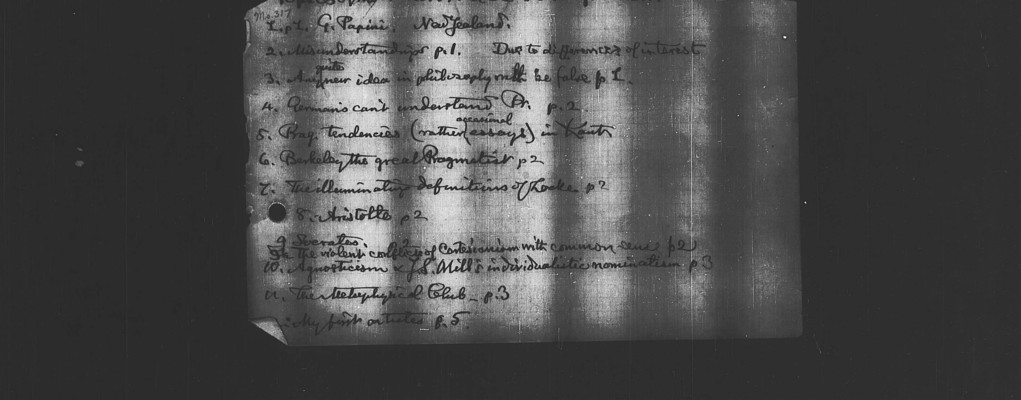 Ms 317
G. Papini. New Zealand.
2. Misunderstandings p. 1. Due to differences of interest
quite
3. Any new idea in philosophy will be false p 1.
4. Germans can't understand Pr. p. 2
occasional
5. Prag. tendencies (rather essays) in Kant
6. Berkeley the great Pragmatist p 2
7. The illuminating definitions of Locke p 2
8. Aristotle p 2
9 Socrates. 2
9a The violent conflict of Cartesianism with common-sense p 2
10. Agnosticism & J.S. Mill's individualistic nominalism p 3
11. The Metaphysical Club - p. 3
My first articles p. 5.